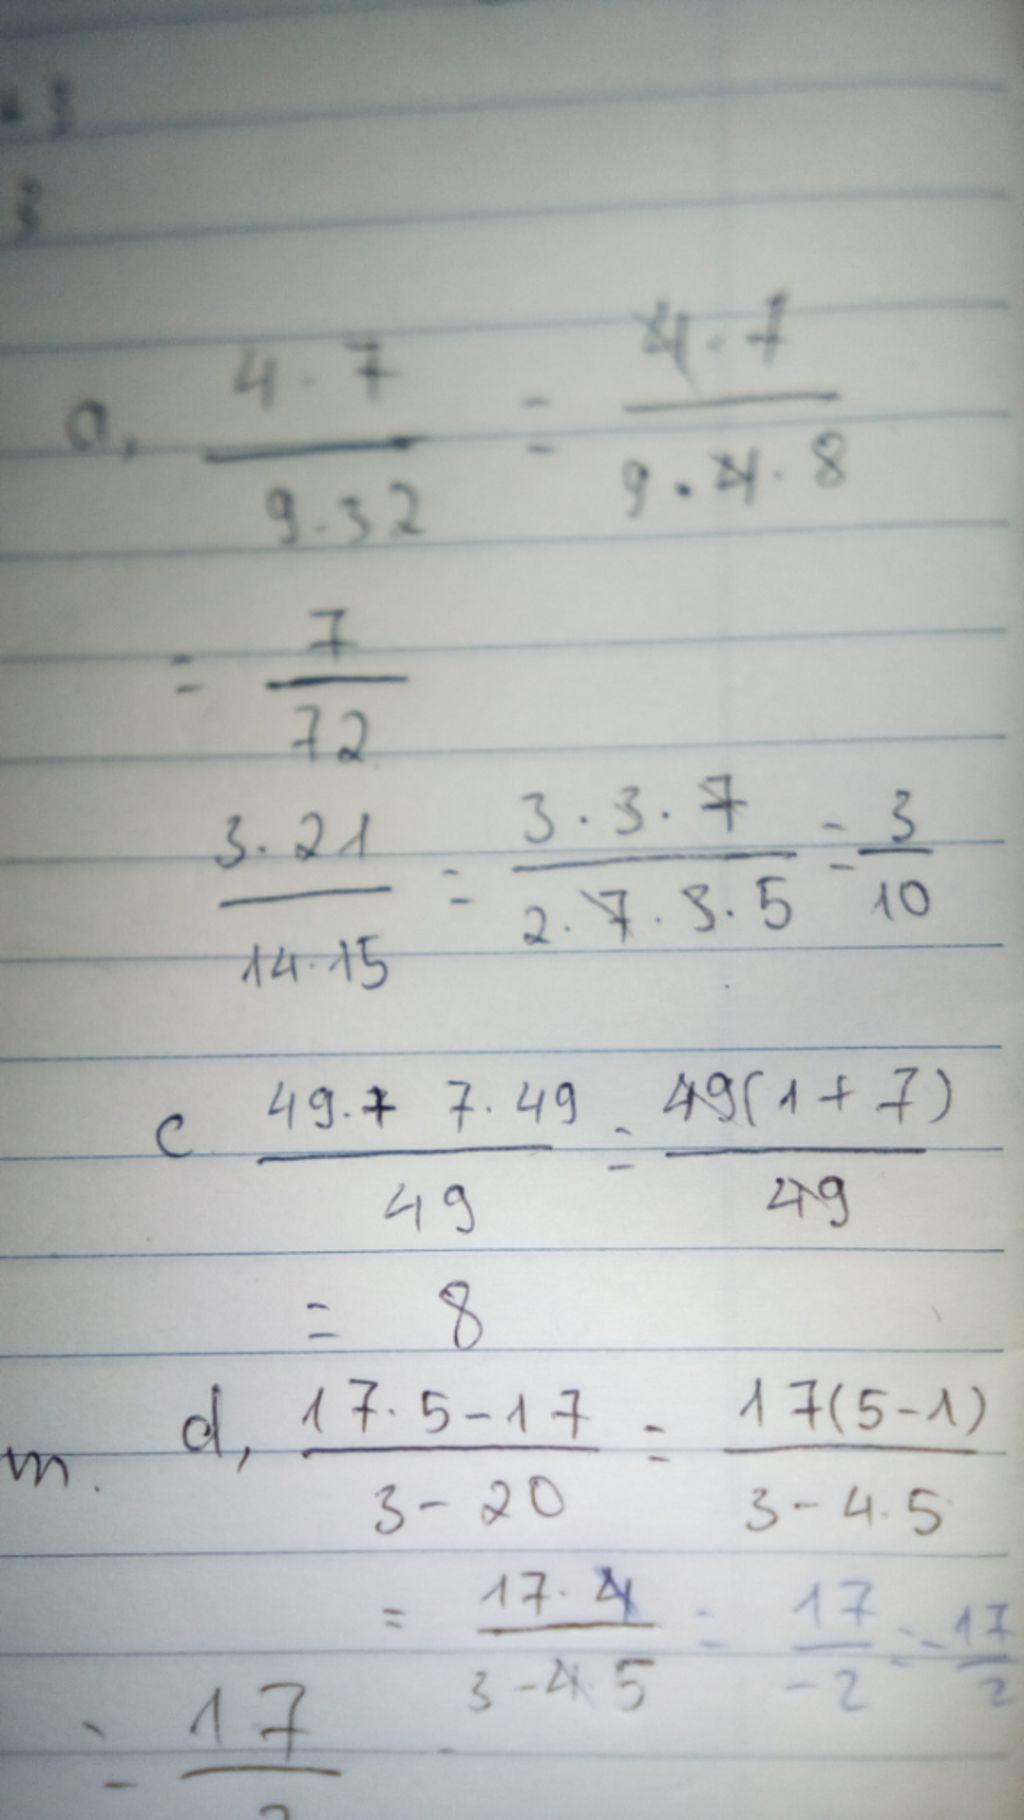 3
a, 4 · 7 / 9 · 32 = 4 · 7 / 9 · 4 · 8
= 7 / 72
3 · 21 / 14 · 15 = 3 · 3 · 7 / 2 · 7 · 3 · 5 = 3 / 10
c 49 · + 7 · 49 / 49 = 49(1 + 7) / 49
= 8
d, 17 · 5 - 17 / 3 - 20 = 17(5 - 1) / 3 - 4 · 5
m.
= 17 · 4 / 3 - 4 · 5 = 17 / -2 = - 17 / 2
= 17